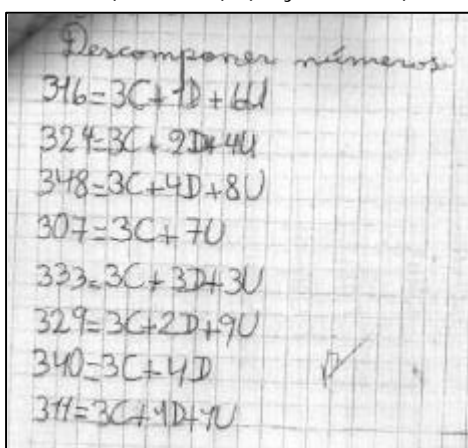 Descomponer números
316=3C+1D+6U
324=3C+2D+4U
348=3C+4D+8U
307=3C+7U
333=3C+3D+3U
329=3C+2D+9U
340=3C+4D
311=3C+1D+1U